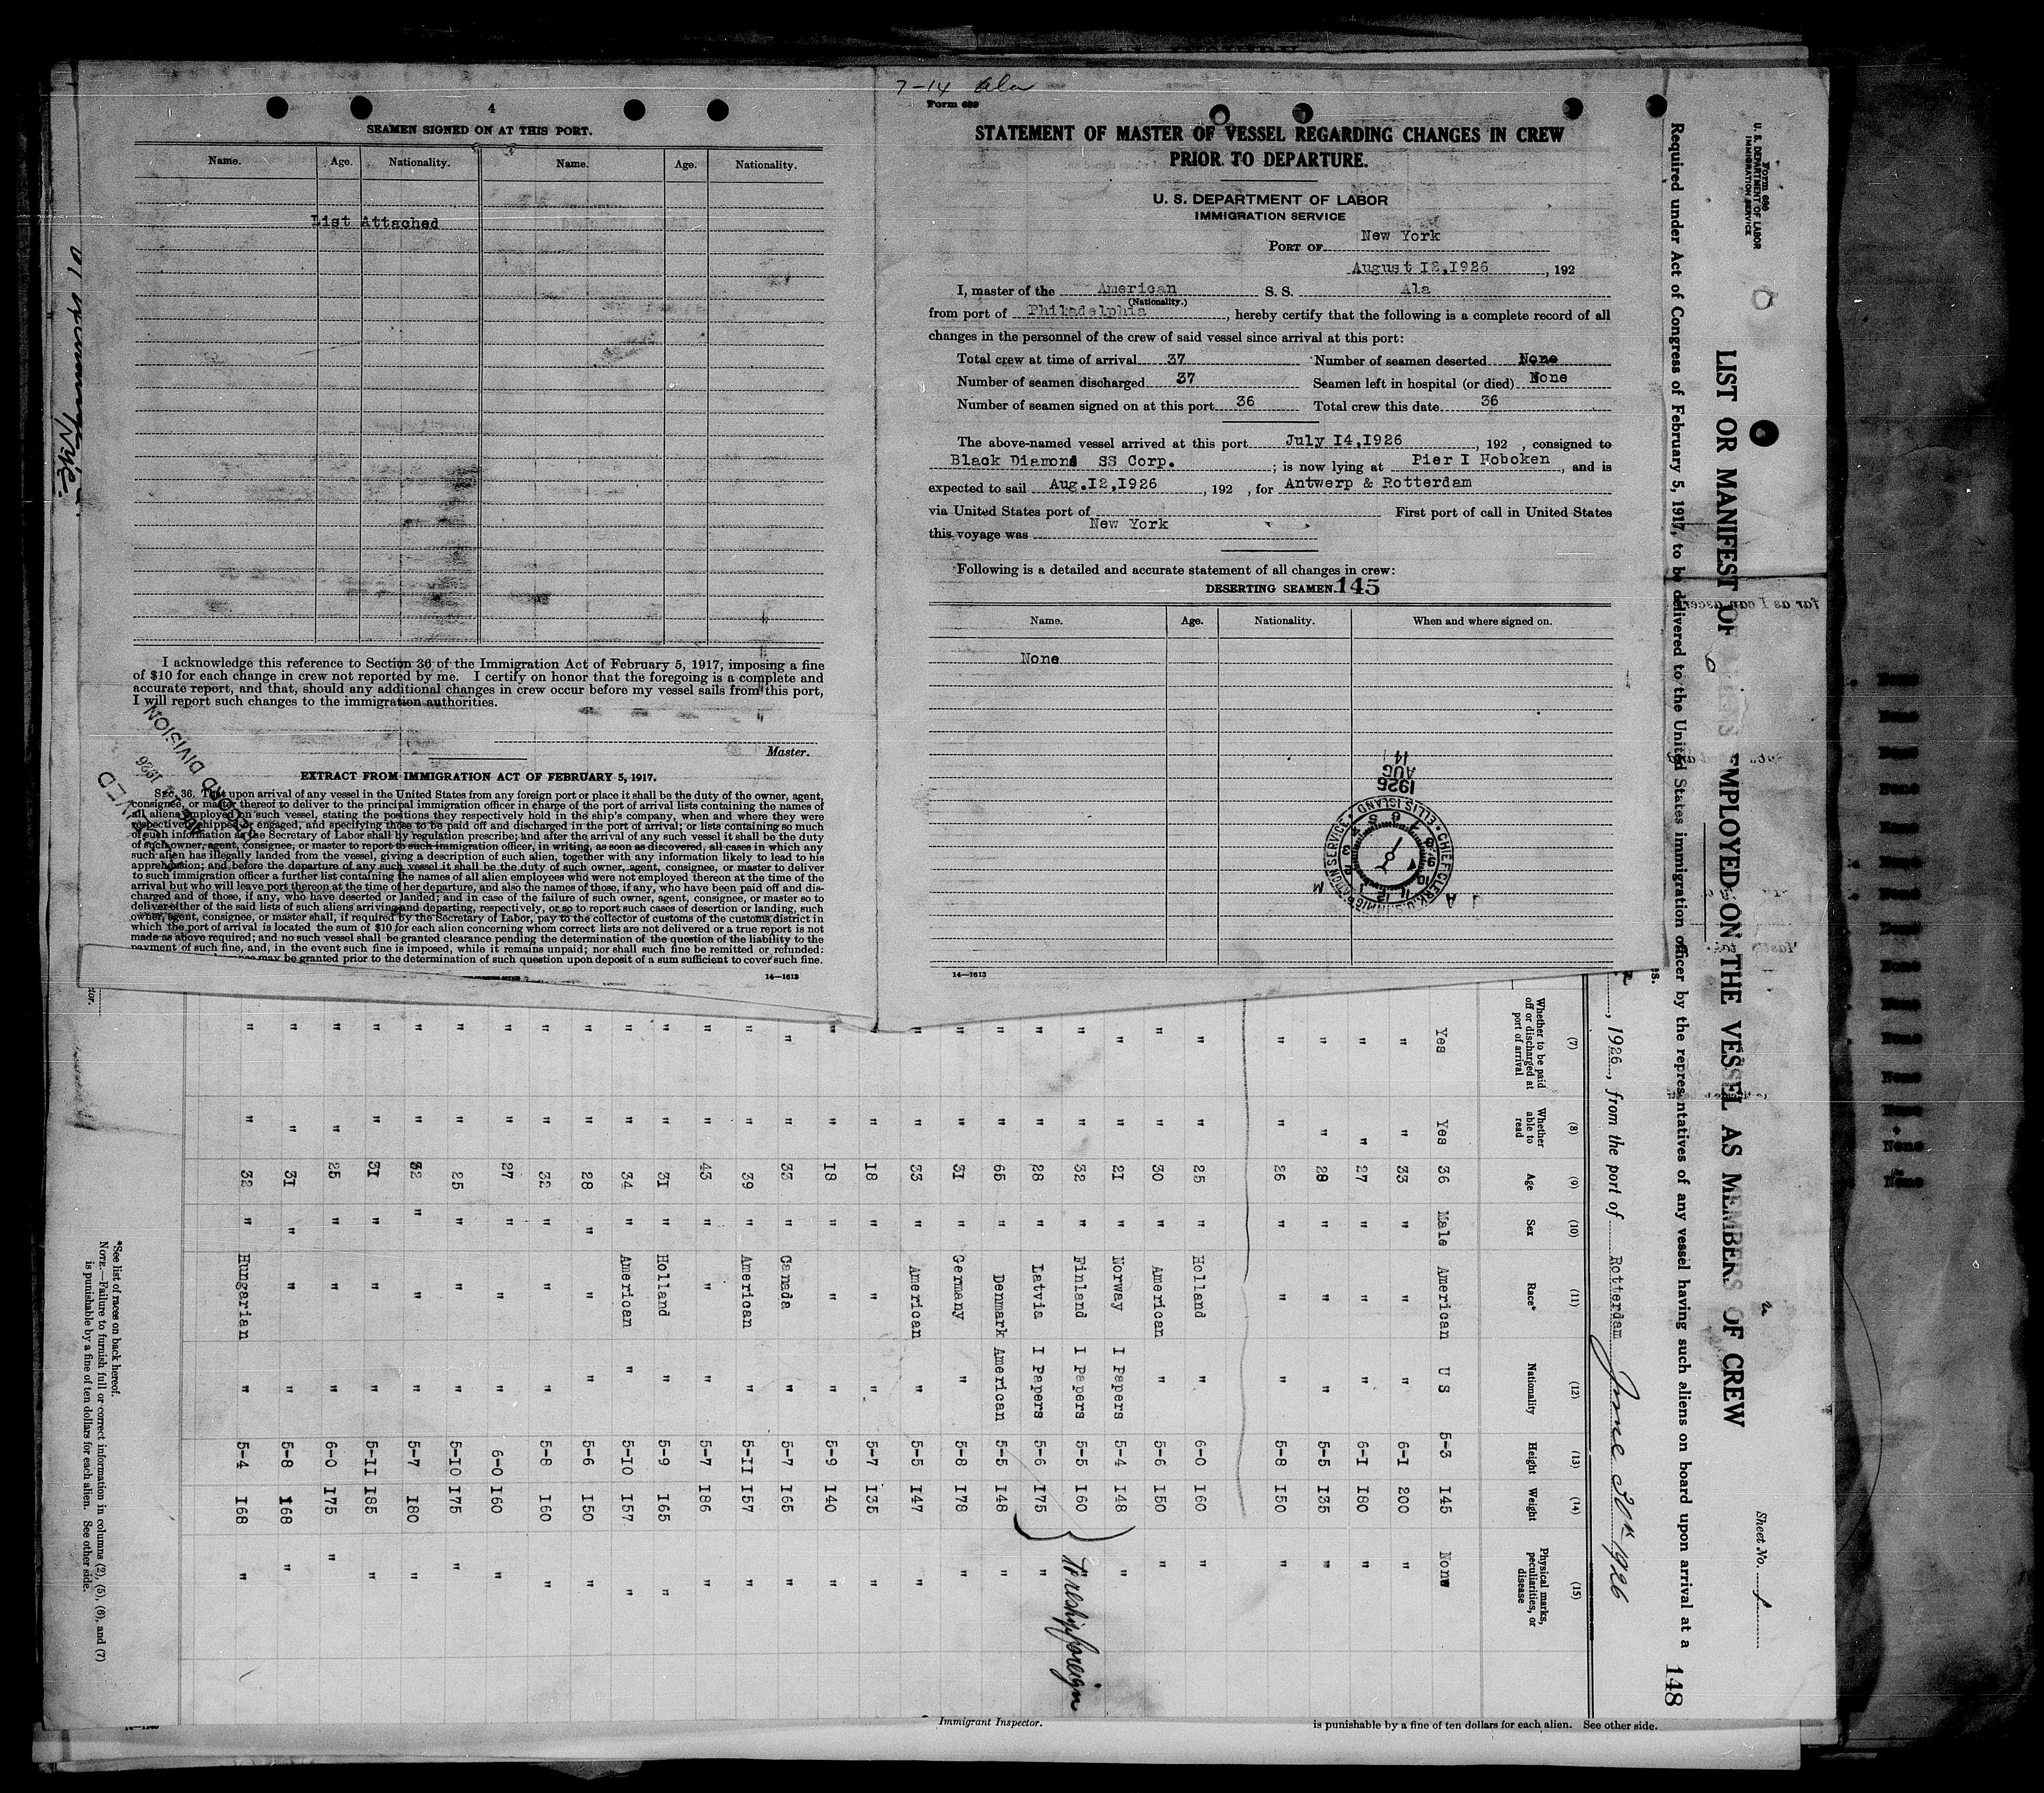 4
SEAMEN SIGNED ON AT THIS PORT.
Name. Age. Nationality. Name. Age. Nationality.
List Attached
I acknowledge this reference to Section 36 of the Immigration Act of February 5, 1917, imposing a fine
of $10 for each change in crew not reported by me. I certify on honor that the foregoing is a complete and
accurate report, and that, should any additional changes in crew occur before my vessel sails from this port,
I will report such changes to the immigration authorities.
Master.
EXTRACT FROM IMMIGRATION ACT OF FEBRUARY 5, 1917.
SEC. 36. That upon arrival of any vessel in the United States from any foreign port or place it shall be the duty of the owner, agent,
consignee, or master thereof to deliver to the principal immigration officer in charge of the port of arrival lists containing the names of
all aliens employed on such vessel, stating the positions they respectively hold in the ship's company, when and where they were
respectively shipped or engaged, and specifying those to be paid off and discharged in the port of arrival; or lists containing so much
of such information as the Secretary of Labor shall by regulation prescribe; and after the arrival of any such vessel it shall be the duty
of such owner, agent, consignee, or master to report to such immigration officer, in writing, as soon as discovered, all cases in which any
such alien has illegally landed from the vessel, giving a description of such alien, together with any information likely to lead to his
apprehension; and before the departure of any such vessel it shall be the duty of such owner, agent, consignee, or master to deliver
to such immigration officer a further list containing the names of all alien employees who were not employed thereon at the time of the
arrival but who will leave port thereon at the time of her departure, and also the names of those, if any, who have been paid off and dis-
charged and of those, if any, who have deserted or landed; and in case of the failure of such owner, agent, consignee, or master so to
deliver either of the said lists of such aliens arriving and departing, respectively, or so to report such cases of desertion or landing, such
owner, agent, consignee, or master shall, if required by the Secretary of Labor, pay to the collector of customs of the customs district in
which the port of arrival is located the sum of $10 for each alien concerning whom correct lists are not delivered or a true report is not
made as above required; and no such vessel shall be granted clearance pending the determination of the question of the liability to the
payment of such fine, and, in the event such fine is imposed, while it remains unpaid; nor shall such fine be remitted or refunded:
may be granted prior to the determination of such question upon deposit of a sum sufficient to cover such fine.
14—1613
RECORD DIVISION
1926
7-14 Ala
Form 689
STATEMENT OF MASTER OF VESSEL REGARDING CHANGES IN CREW
PRIOR TO DEPARTURE.
U. S. DEPARTMENT OF LABOR
IMMIGRATION SERVICE
PORT OF New York
August I2,I926, 192
I, master of the American S. S. Ala
(Nationality.)
from port of Philadelphia, hereby certify that the following is a complete record of all
changes in the personnel of the crew of said vessel since arrival at this port:
Total crew at time of arrival 37 Number of seamen deserted None
Number of seamen discharged 37 Seamen left in hospital (or died) None
Number of seamen signed on at this port 36 Total crew this date 36
The above-named vessel arrived at this port July I4,I926, 192 , consigned to
Black Diamond SS Corp. ; is now lying at Pier I Hoboken, and is
expected to sail Aug.I2,I926, 192 , for Antwerp & Rotterdam
via United States port of First port of call in United States
this voyage was New York
Following is a detailed and accurate statement of all changes in crew:
DESERTING SEAMEN. 145
Name. Age. Nationality. When and where signed on.
None
1926
AUG
14
CHIEF CLERK, U.S. IMMIGRATION SERVICE ELLIS ISLAND
14—1613
Form 680
U. S. DEPARTMENT OF LABOR
IMMIGRATION SERVICE
Sheet No. 1
LIST OR MANIFEST OF EMPLOYED ON THE VESSEL AS MEMBERS OF CREW
Required under Act of Congress of February 5, 1917, to be delivered to the United States immigration officer by the representatives of any vessel having such aliens on board upon arrival at a
148
, 1926, from the port of Rotterdam June 30th 1926
(7) (8) (9) (10) (11) (12) (13) (14) (15)
Whether to be paid off or discharged at port of arrival Whether able to read Age Sex Race* Nationality Height Weight Physical marks, peculiarities, or disease
Yes Yes 36 Male American U S 5-3 I45 None
" " 33 " " " 6-I 200 "
" " 27 " " " 6-I I80 "
" " 28 " " " 5-5 I35 "
" " 26 " " " 5-8 I50 "
" " 25 " Holland " 6-0 I60 "
" " 30 " American " 5-6 I50 "
" " 2I " Norway I Papers 5-4 I48 "
" " 32 " Finland I Papers 5-5 I60
" " 28 " Latvia I Papers 5-6 I75 "
" " 65 " Denmark American 5-5 I48 "
" " 3I " Germany " 5-8 I78 "
" " 33 " American " 5-5 I47 "
" " I8 " " " 5-7 I35 "
" " I8 " " " 5-9 I40 "
" " 33 " Canada " 5-7 I65 "
" " 39 " American " 5-II I57 "
" " 43 " " " 5-7 I86 "
" " 3I " Holland " 5-9 I65 "
" " 34 " American " 5-I0 I57 "
" " 28 " " " 5-6 I50 "
" " 32 " " " 5-8 I60 "
" " 27 " " " 6-0 I60 "
" " 25 " " " 5-I0 I75 "
" " 32 " " " 5-7 I80 "
" " 3I " " " 5-II I85 "
" " 25 " " " 6-0 I75 "
" " 3I " " " 5-8 I68 "
" " 32 " Hungarian " 5-4 I68 "
To reship foreign
*See list of races on back hereof.
NOTE.—Failure to furnish full or correct information in columns (2), (5), (6), and (7)
is punishable by a fine of ten dollars for each alien. See other side.
Immigrant Inspector.
is punishable by a fine of ten dollars for each alien. See other side.
None
None
None
None
None
None